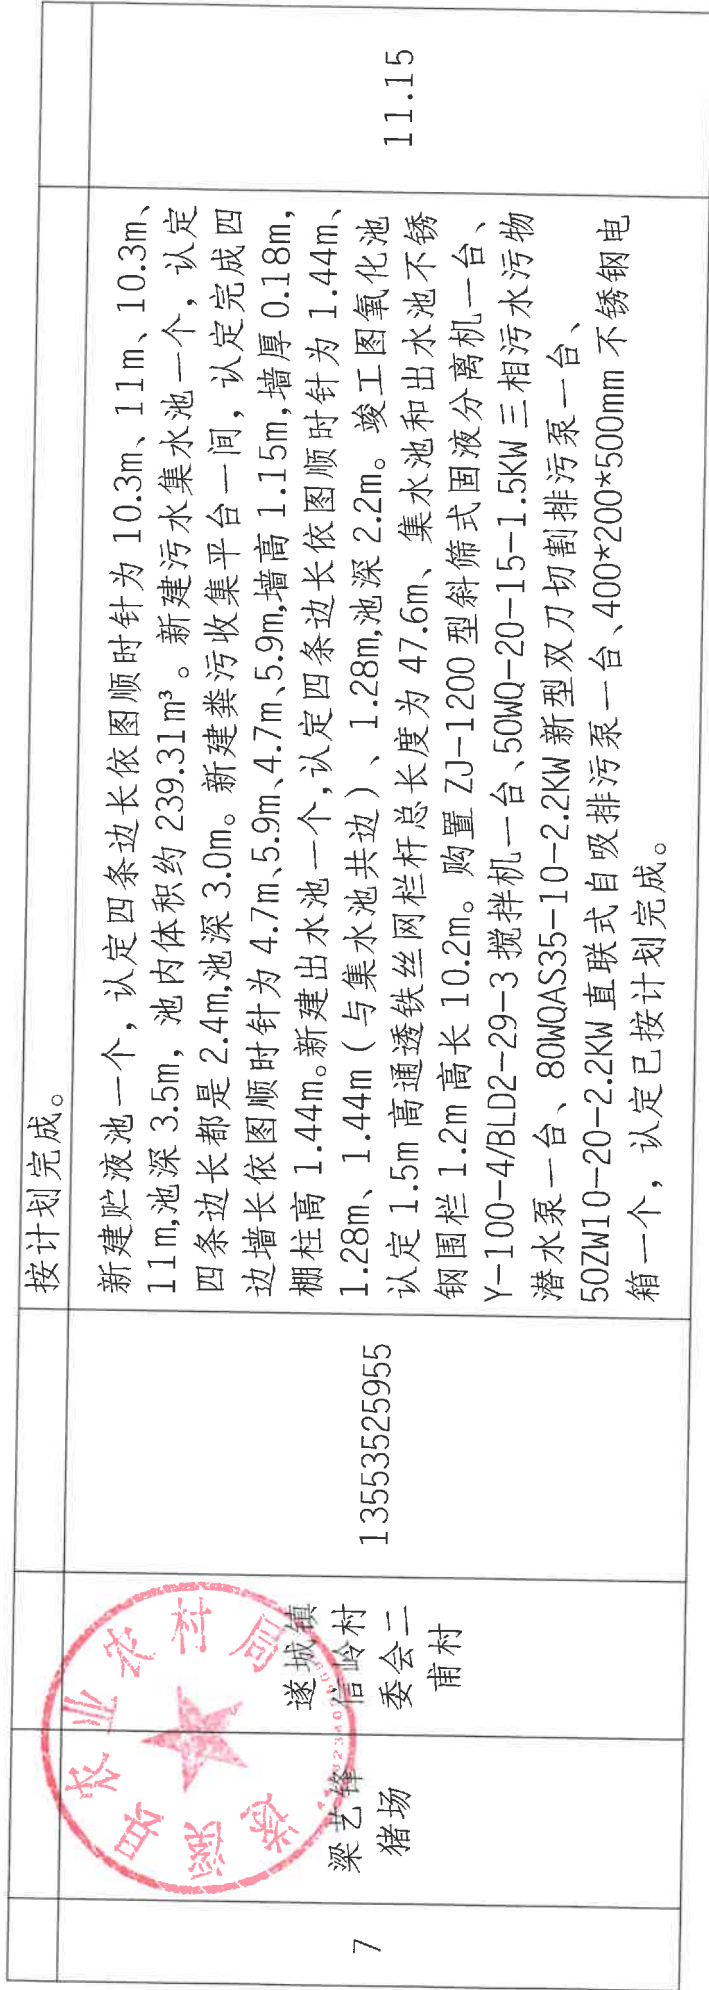 按计划完成。
7
梁艺锋
猪场
遂城镇
信岭村
委会二
甫村
13553525955
新建贮液池一个，认定四条边长依图顺时针为 10.3m、11m、10.3m、
11m,池深 3.5m，池内体积约 239.31m³。新建污水集水池一个，认定
四条边长都是 2.4m,池深 3.0m。新建粪污收集平台一间，认定完成四
边墙长依图顺时针为 4.7m、5.9m、4.7m、5.9m,墙高 1.15m,墙厚 0.18m,
棚柱高 1.44m。新建出水池一个,认定四条边长依图顺时针为 1.44m、
1.28m、1.44m（与集水池共边）、1.28m,池深 2.2m。竣工图氧化池
认定 1.5m 高通透铁丝网栏杆总长度为 47.6m、集水池和出水池不锈
钢围栏 1.2m 高长 10.2m。购置 ZJ-1200 型斜筛式固液分离机一台、
Y-100-4/BLD2-29-3 搅拌机一台、50WQ-20-15-1.5KW 三相污水污物
潜水泵一台、80WQAS35-10-2.2KW 新型双刀切割排污泵一台、
50ZW10-20-2.2KW 直联式自吸排污泵一台、400*200*500mm 不锈钢电
箱一个，认定已按计划完成。
11.15
遂溪县农业农村局